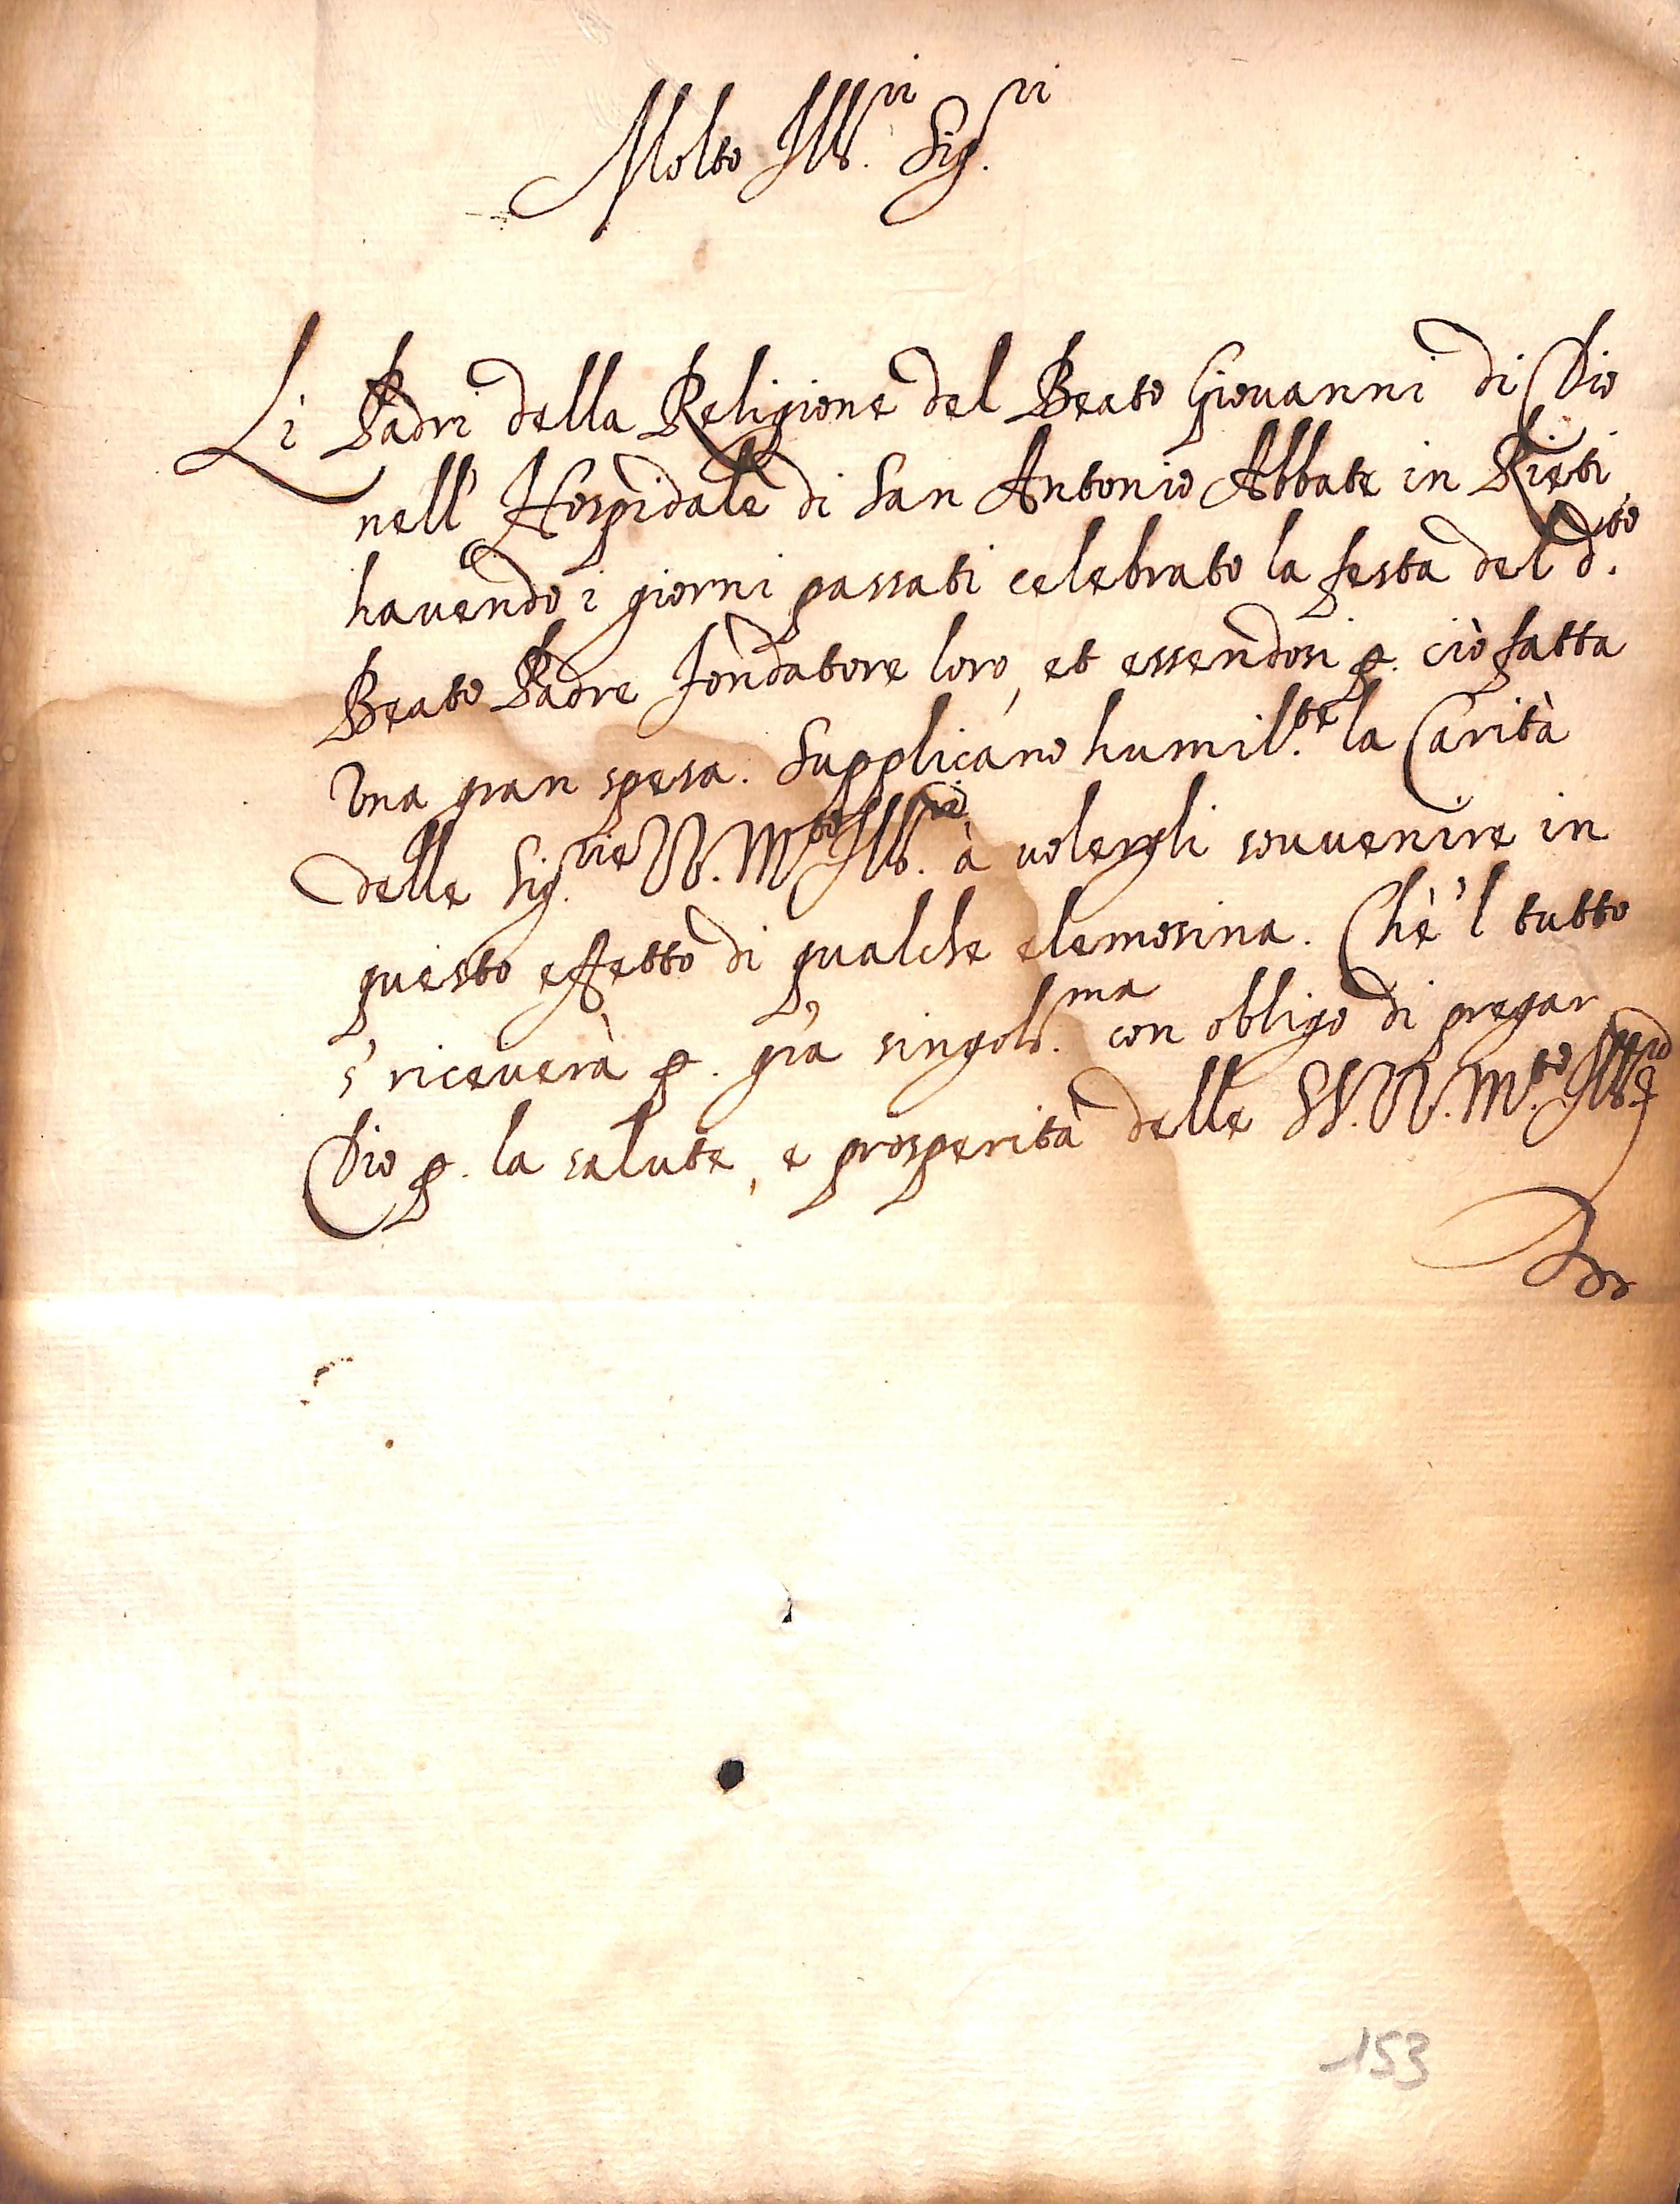 Molto Ill.ri Sig.ri
Li Padri della Religione del Beato Giovanni di Dio
nell' Hospidale di San Antonio Abbate in Rieti,
havendo i giorni passati celebrato la festa del d.to
Beato Padre fondatore loro, et essendosi p. ciò fatta
Una gran spesa. Supplicano humil.te la Carità
delle Sig.rie VV. M.to Ill.ri à volergli souvenire in
questo effetto di qualche elemosina. Chè 'l tutto
s' riceverà p. gr'a singol.ma con obligo di pregar
Dio p. la salute, e prosperità delle SS. VV. M.to Ill.ri
153